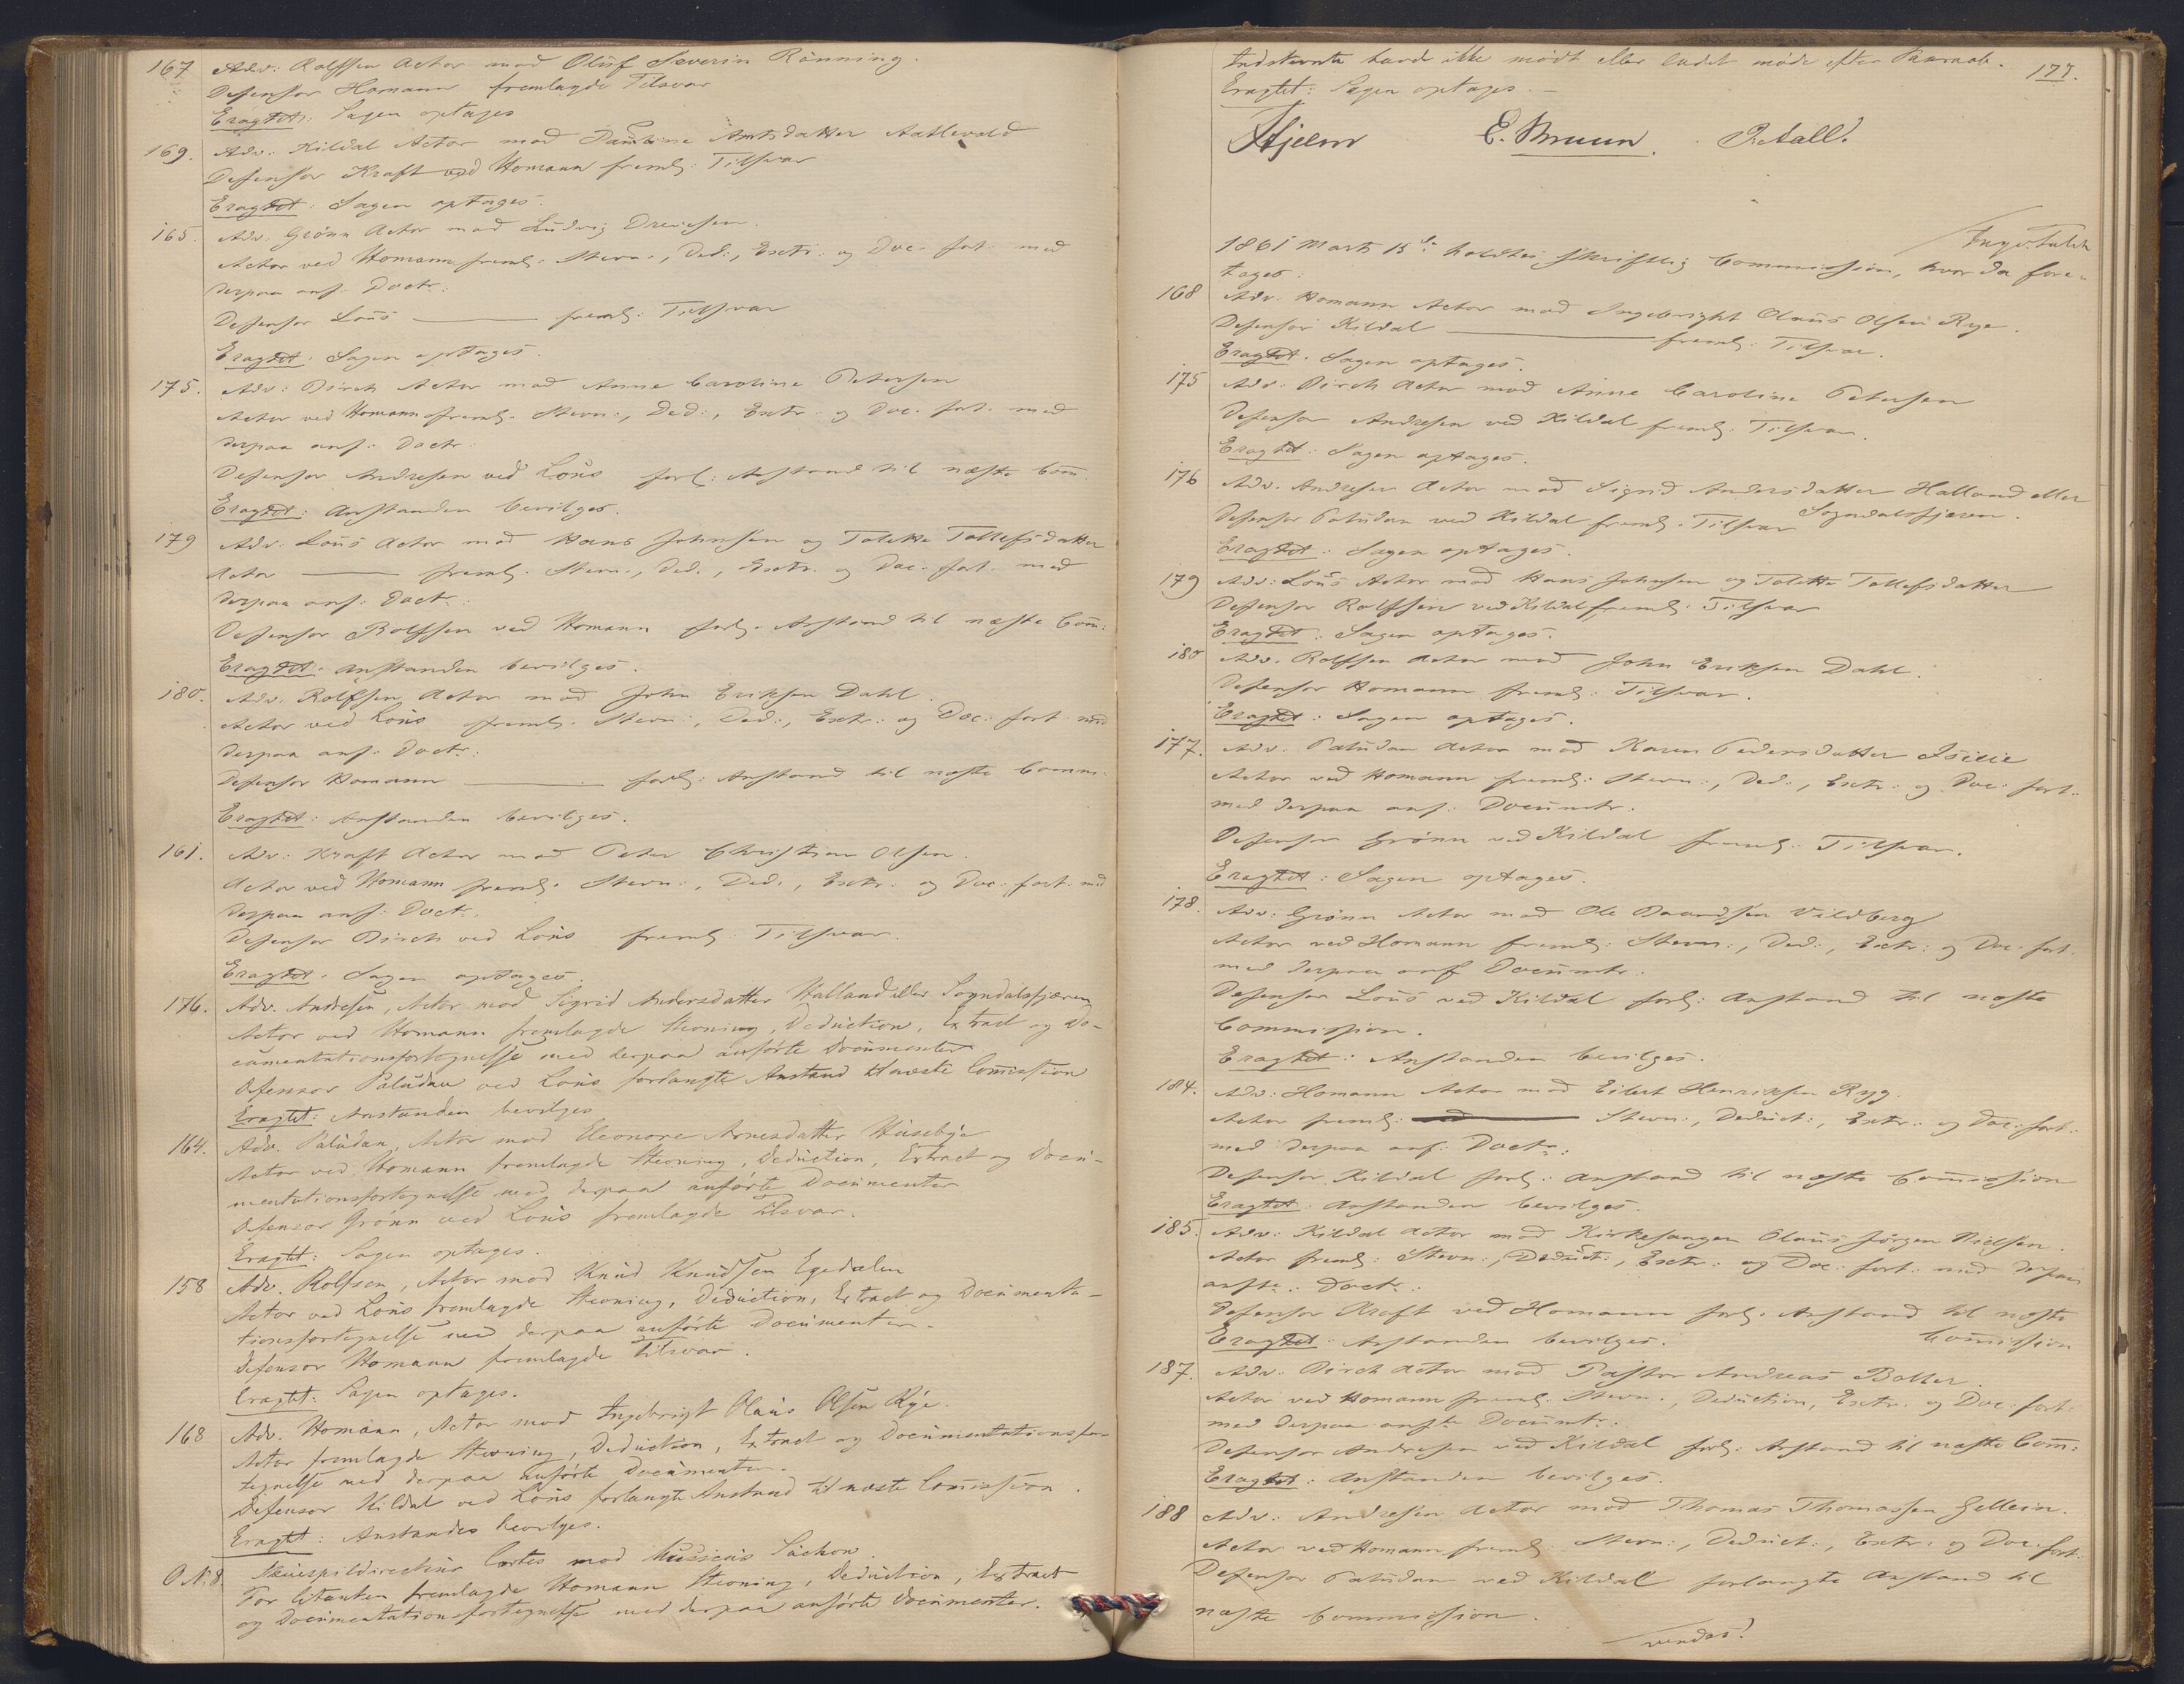 167 Adv: Rolffsen Actor mod Oluf Severin Rönning.
Defensor Homann fremlagde Tilsvar
Eragtet: Sagen optages
169. Adv. Kildal Actor mod Amtsdatter
Defensor Kraft ved Homann freml: Tilsvar
Eragtet: Sagen optages.
165. Adv. Grönn Actor mod Ludvig Drevesen.
Actor ved Homann freml: Stevn:, Ded:, Extr: og Doc. fort. med
derpaa anf. Doctr:
Defensor Lous ——— freml: Tilsvar
Eragtet: Sagen optages.
175. Adv: Birch Actor mod Anne Caroline Petersen
Actor ved Homann freml. Stevn:, Ded:, Extr: og Doc. fort. med
derpaa anf: Doctr:
Defensor Andresen ved Lous forl: Anstand til næste Com̄.
Eragtet: Anstanden bevilges.
179 Adv: Lous Actor mod Hans Johnsen og Tolette Tollefsdatter
Actor ——— freml. Stevn:, Ded., Extr. og Doc. fort. med
derpaa anf: Doctr:
Defensor Rolffsen ved Homann forl. Anstand til næste Com̄:
Eragtet: Anstanden bevilges.
180. Adv. Rolffsen Actor mod John Eriksen Dahl.
Actor ved Lous freml. Stevn:, Ded:, Extr: og Doc: fort med
derpaa anf: Doctr:
Defensor Homann ——— forl: Anstand til næste Comm.
Eragtet: Anstanden bevilges.
161. Adv: Kraft Actor mod Peter Christian Olsen.
Actor ved Homann freml. Stevn:, Ded:, Extr: og Doc: fort: med
derpaa anf: Doctr.
Defensor Birch ved Lous freml: Tilsvar.
Eragtet: Sagen optages.
176. Adv. Andresen, Actor mod Sigrid Andersdatter Halland eller Sogndalsfjæren
Actor ved Homann fremlagde Stevning, Deduction, Extract og Do-
cumentationsfortegnelse med derpaa anførte Documenter
Defensor Paludan ved Lous forlangte Anstand til næste Com̄ission
Eragtet: Anstanden bevilges
164. Adv. Paludan, Actor mod Eleonore Arnesdatter Husebye
Actor ved Homann fremlagde Stevning, Deduction, Extract og Docu-
mentationsfortegnelse med derpaa anførte Documenter
Defensor Grönn ved Lous fremlagde Tilsvar.
Eragtet: Sagen optages.
158 Adv. Rolfsen, Actor mod Knud Knudsen Egedalen
Actor ved Lous fremlagde Stevning, Deduction, Extract og Documenta-
tionsfortegnelse med derpaa anførte Documenter.
Defensor Homann fremlagde Tilsvar.
Eragtet: Sagen optages.
168 Adv. Homann, Actor mod Ingebrigt Olaus Olsen Rye.
Actor fremlagde Stevning, Deduction, Extract og Documentationsfor-
tegnelse med derpaa anførte Documenter.
Defensor Kildal ved Lous forlangte Anstand til næste Com̄ission.
Eragtet: Anstanden bevilges.
O. N. 8. Skuespildirecteur Cortes mod Musicus
For Citanten fremlagde Homann Stevning, Deduction, Extract
og Documentationsfortegnelse med derpaa anførte Documenter.
Indstevnte havde ikke mödt eller ladet möde efter Paaraab.
177.
Eragtet: Sagen optages.
Hjelm E. Bruun. P. Aall.
1861 Marts 15de holdtes Skriftlig Commission, hvor da fore-
toges:
168 Adv. Homann Actor mod Ingebright Olaus Olsen Rye.
Defensor Kildal ——— freml: Tilsvar.
Eragtet. Sagen optages.
175 Adv. Birch Actor mod Anne Caroline Petersen
Defensor Andresen ved Kildal freml: Tilsvar.
Eragtet: Sagen optages.
176 Adv. Andresen Actor mod Sigrid Andersdatter Halland eller
Sogndalsfjæren.
Defensor Paludan ved Kildal freml. Tilsvar
Eragtet: Sagen optages.
179 Adv: Lous Actor mod Hans Johnsen og Tolette Tollefsdatter
Defensor Rolffsen ved Kildal freml: Tilsvar
Eragtet: Sagen optages.
180 Adv. Rolffsen Actor mod John Eriksen Dahl.
Defensor Homann freml: Tilsvar.
Eragtet: Sagen optages.
177. Adv. Paludan Actor mod Karen Pedersdatter
Actor ved Homann freml: Stevn:, Ded:, Extr: og Doc: fort.
med derpaa anf: Documtr:
Defensor Grönn ved Kildal freml: Tilsvar.
Eragtet: Sagen optages.
178. Adv: Grönn Actor mod Ole Vildberg
Actor ved Homann freml: Stevn:, Ded:, Extr: og Doc. fort.
med derpaa anf Documtr:
Defensor Lous ved Kildal forl: Anstand til næste
Commission.
Eragtet: Anstanden bevilges.
184. Adv: Homann Actor mod Eilert Henriksen Ryg.
Actor freml: Stevn:, Deduct:, Extr: og Doc: fort:
med derpaa anf: Doctr:
Defensor Kildal forl: Anstand til næste Com̄ission
Eragtet: Anstanden bevilges.
185. Adv: Kildal Actor mod Kirkesanger Olaus Jörgen Nielsen.
Actor freml: Stevn:, Deduct:, Extr: og Doc: fort: med derpaa
anfte. Doctr:
Defensor Kraft ved Homann forl. Anstand til næste
Com̄ission
Eragtet: Anstanden bevilges.
187. Adv: Birch Actor mod Pastor Andreas
Actor ved Homann freml. Stevn., Deduction, Extr. og Doc. fort.
med derpaa anfte Documtr.
Defensor Andresen ved Kildal forl: Anstand til næste Com̄:
Eragtet: Anstanden bevilges.
188 Adv: Andresen Actor mod Thomas Thomassen Gellein.
Actor ved Homann freml: Stevn:, Deduct:, Extr: og Doc: fort:
Defensor Paludan ved Kildal forlangte Anstand til
næste Commission.
vendes!